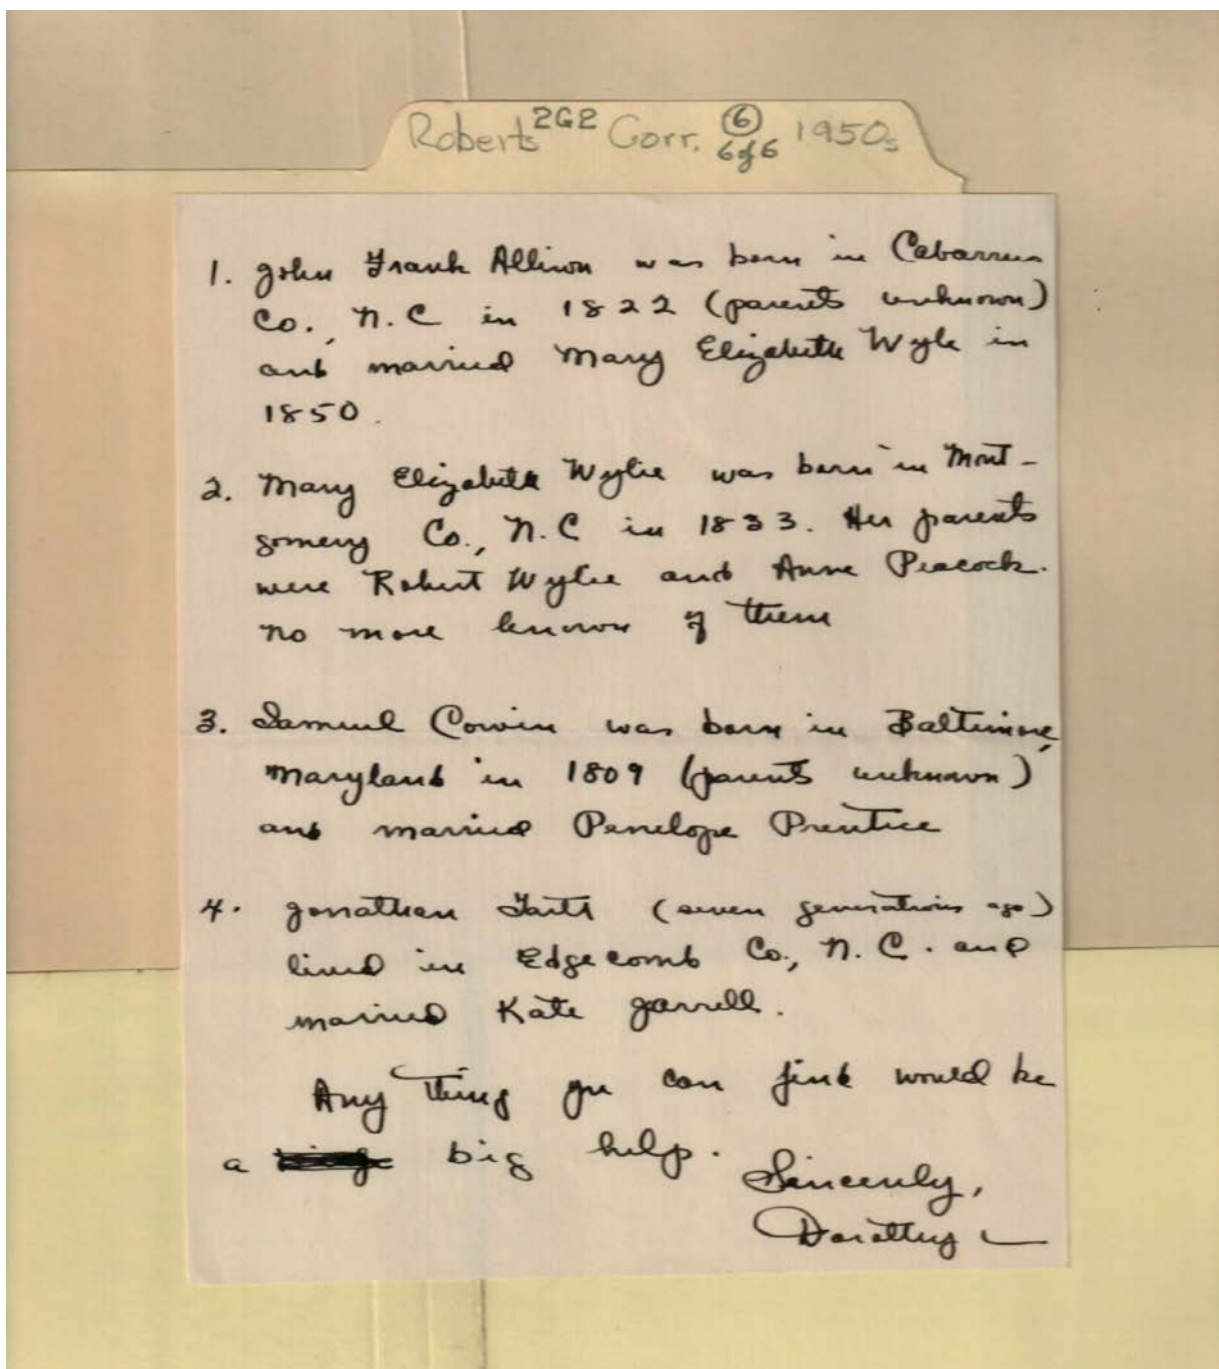 Roberts 2G2 Corr. 6 1950s
6 of 6
1. John Frank Allison was born in Cabarrus
Co., N.C in 1822 (parents unknown)
and married Mary Elizabeth Wyle in
1850.
2. Mary Elizabeth Wylie was born in Mont-
gomery Co., N.C in 1833. Her parents
were Robert Wylie and Anne Peacock.
No more known of them
3. Samuel Cowin was born in Baltimore,
Maryland in 1809 (parents unknown)
and married Penelope Prentice
4. Jonathan (seven generations ago)
lived in Edgecomb Co., N.C. and
married Kate Jarrell.
Any thing you can find would be
a big help.
Sincerely,
Dorothy